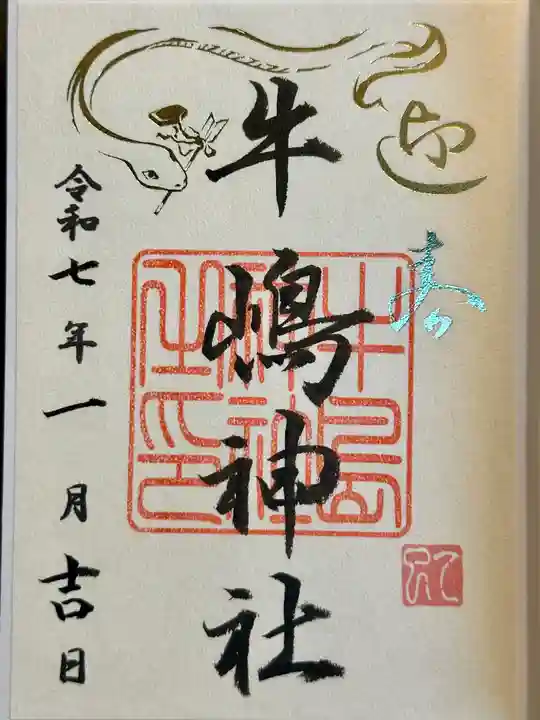 迎
春
牛嶋神社
令和七年一月吉日